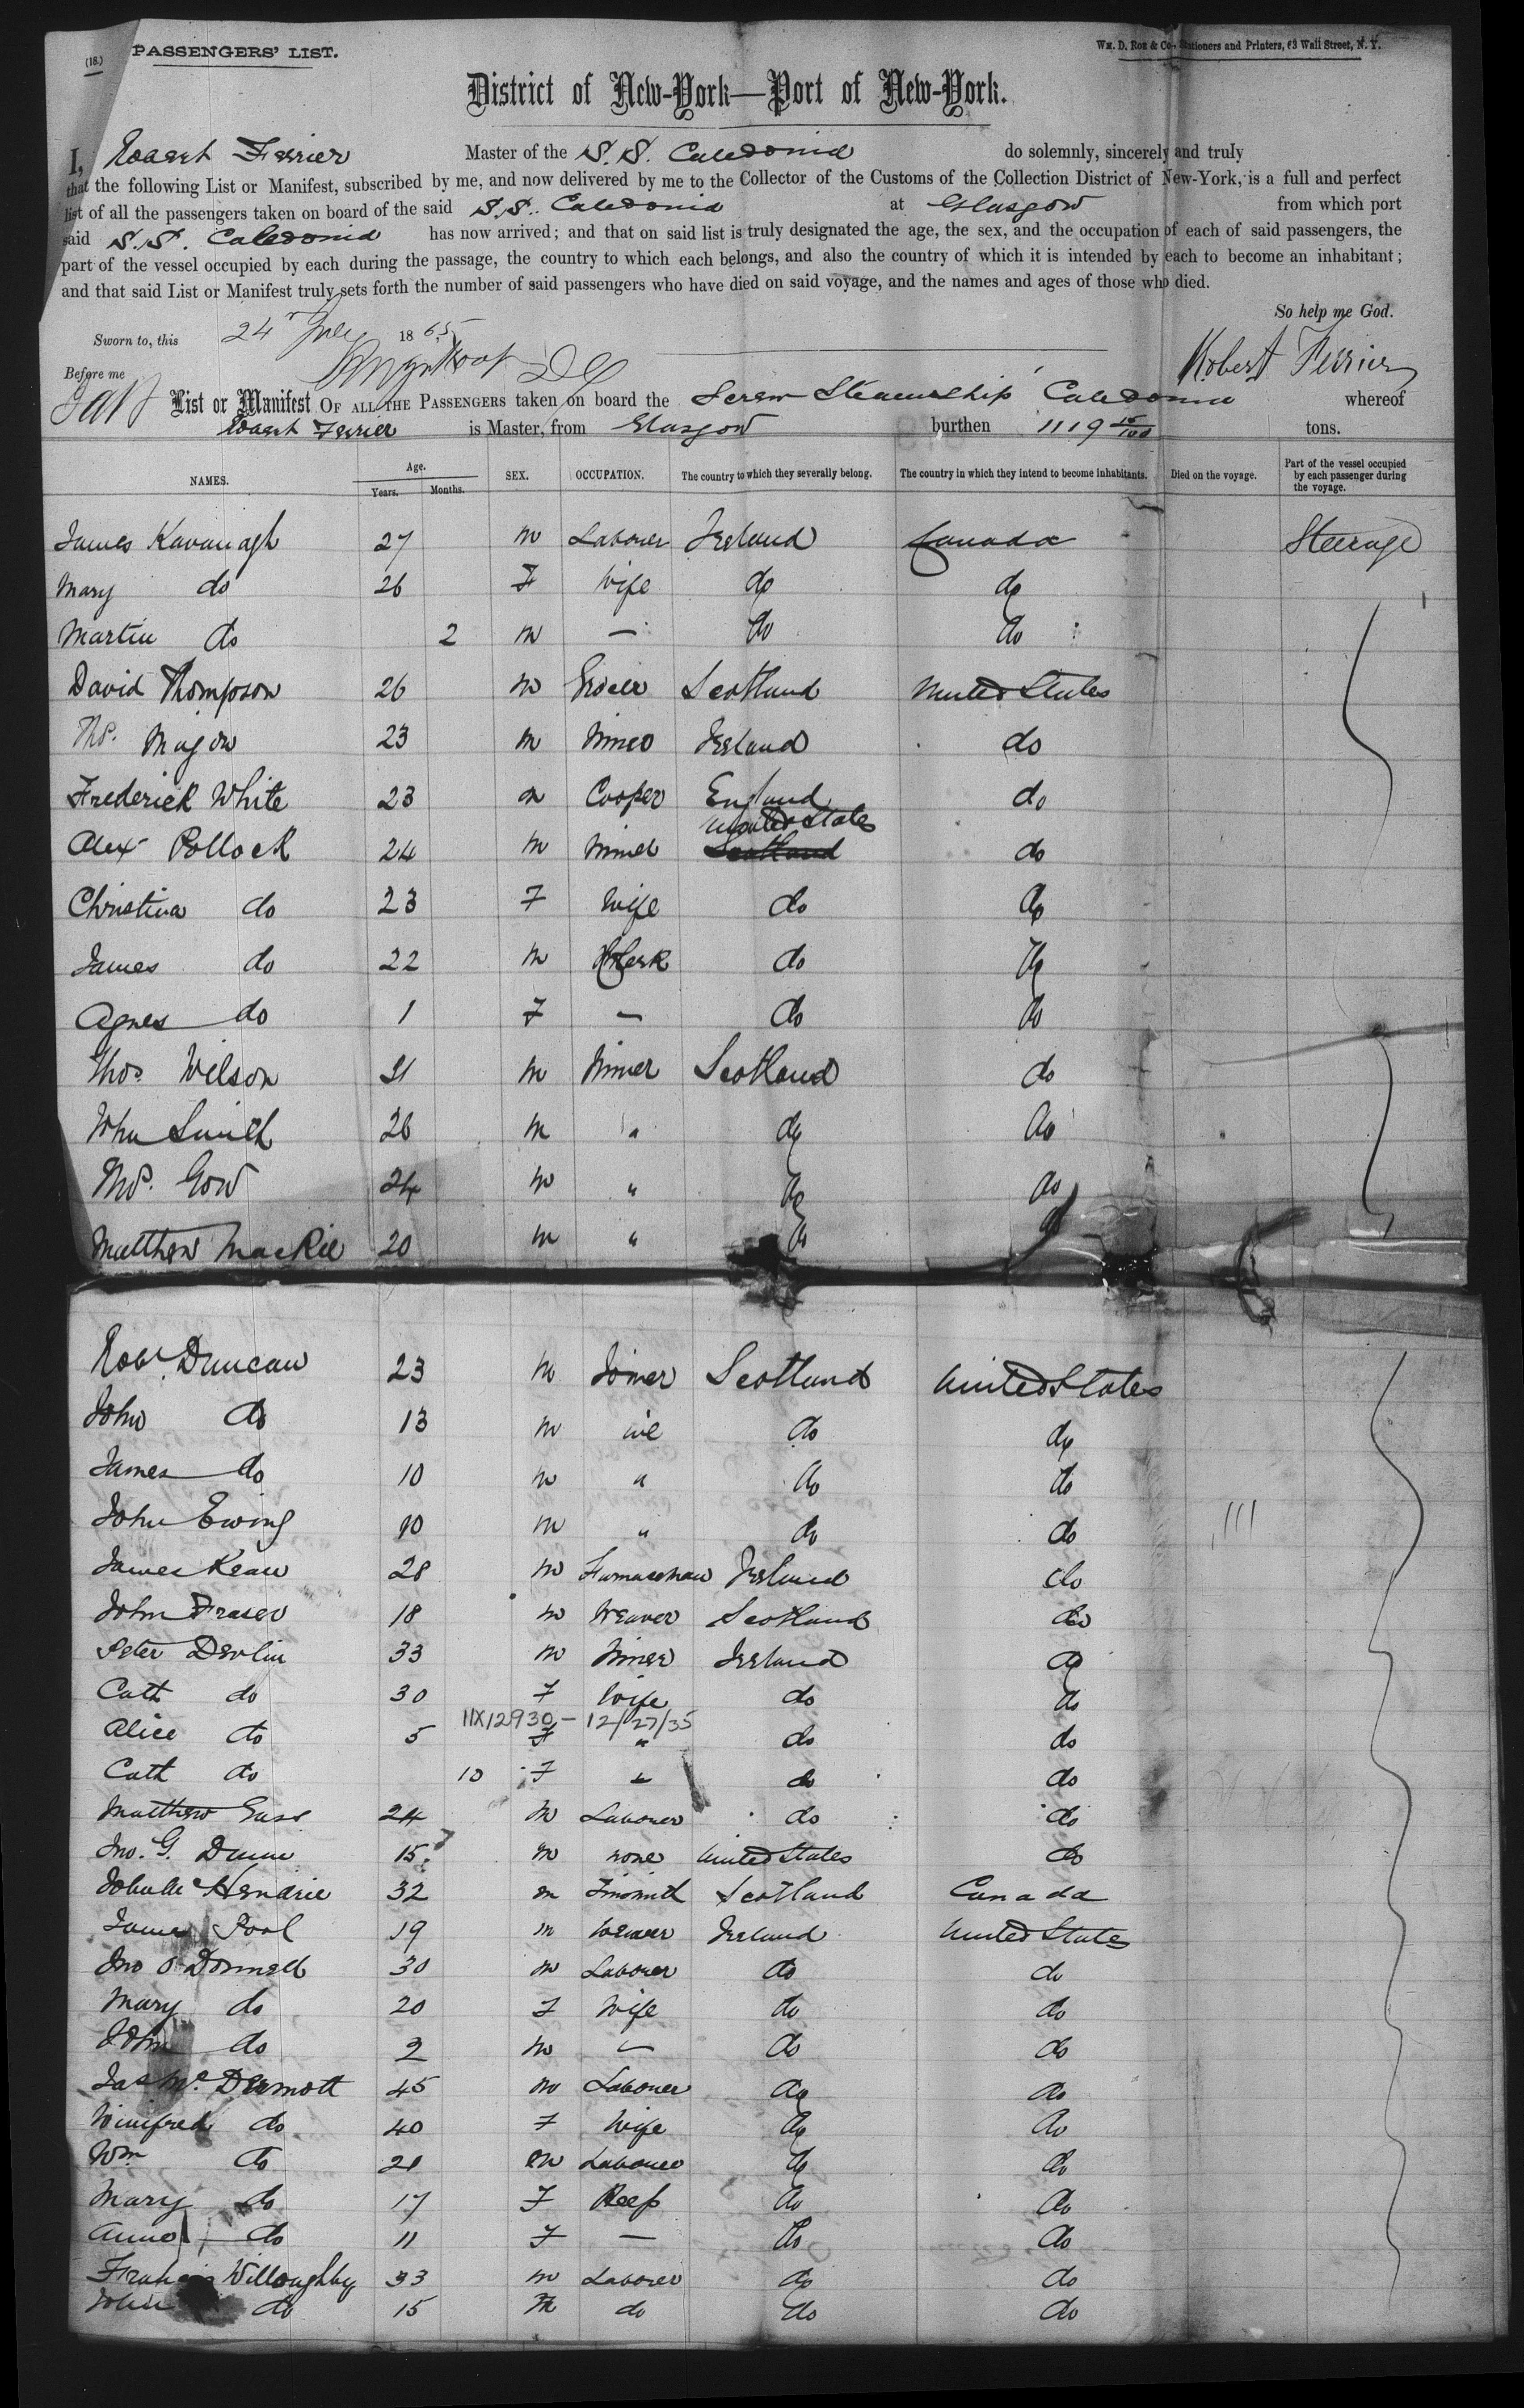 (18.)
PASSENGERS' LIST.
Wm. D. Roe & Co., Stationers and Printers, 63 Wall Street, N. Y.
District of New-York—Port of New-York.
I, Robert Ferrier Master of the S.S. Caledonia do solemnly, sincerely and truly
that the following List or Manifest, subscribed by me, and now delivered by me to the Collector of the Customs of the Collection District of New-York, is a full and perfect
list of all the passengers taken on board of the said S.S. Caledonia at Glasgow from which port
said S.S. Caledonia has now arrived; and that on said list is truly designated the age, the sex, and the occupation of each of said passengers, the
part of the vessel occupied by each during the passage, the country to which each belongs, and also the country of which it is intended by each to become an inhabitant;
and that said List or Manifest truly sets forth the number of said passengers who have died on said voyage, and the names and ages of those who died.
So help me God.
Sworn to, this 24 July 1865
Robert Ferrier
Before me
List or Manifest OF ALL THE PASSENGERS taken on board the Screw Steamship Caledonia whereof
Robert Ferrier is Master, from Glasgow burthen 1119 tons.
NAMES. Age. Years. Months. SEX. OCCUPATION. The country to which they severally belong. The country in which they intend to become inhabitants. Died on the voyage. Part of the vessel occupied by each passenger during the voyage.
James Kavanagh 27 M Labourer Ireland Canada Steerage
Mary do 26 F Wife do do
Martin do 2 M — do do
David Thompson 26 M Scotland United States
Thos. Magow 23 M Miner Ireland do
Frederick White 23 M Cooper England do
Alex Pollock 24 M Miner United States Scotland do
Christina do 23 F Wife do do
James do 22 M Clerk do do
Agnes do 1 F — do do
Thos. Wilson 21 M Miner Scotland do
John Smith 26 M " do do
Thos. Gow 24 M " do do
Matthew Mackie 20 M " do do
Robt. Duncan 23 M Joiner Scotland United States
John do 13 M do do
James do 10 M " do do
John Ewing 90 M " do do
James Kean 28 M Furnaceman Ireland do
John Fraser 18 M Weaver Scotland do
Peter Devlin 33 M Miner Ireland do
Cath do 30 F Wife do do
11X12930 - 12/27/35
Alice do 5 F " do do
Cath do 10 F " do do
Matthew 24 M Labourer do do
Jno. G. Dunn 15 M none United States do
John McHendrie 32 M Tinsmith Scotland Canada
James Pool 19 M Weaver Ireland United States
Jno O'Donnell 30 M Labourer do do
Mary do 20 F Wife do do
John do 2 M — do do
Jas McDermott 45 M Labourer do do
Winifred do 40 F Wife do do
Wm do 21 M Labourer do do
Mary do 17 F do do
Anne do 11 F — do do
Francis Willoughby 33 M Labourer do do
John do 15 M do do do